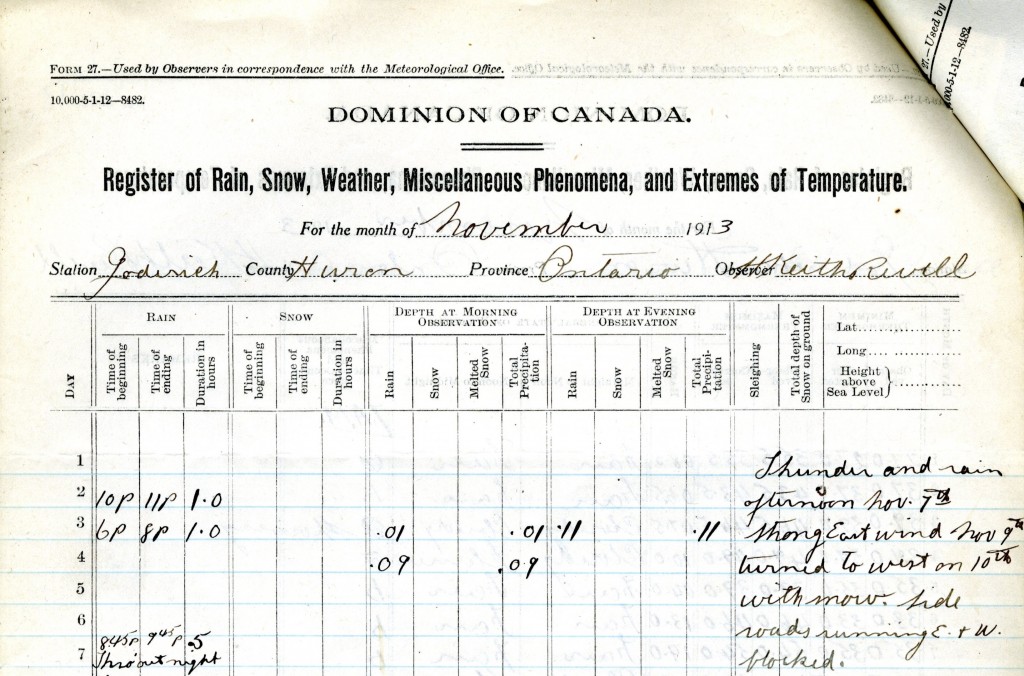 FORM 27.—Used by Observers in correspondence with the Meteorological Office.
10,000-5-1-12—8482.
27.—Used by
000-5-1-12—8482.
DOMINION OF CANADA.
Register of Rain, Snow, Weather, Miscellaneous Phenomena, and Extremes of Temperature.
For the month of November 1913
Station Goderich County Huron Province Ontario Observer H Keith Revell
RAIN SNOW DEPTH AT MORNING OBSERVATION DEPTH AT EVENING OBSERVATION
DAY Time of beginning Time of ending Duration in hours Time of beginning Time of ending Duration in hours Rain Snow Melted Snow Total Precipita-tion Rain Snow Melted Snow Total Precipi-tation Sleighing Total depth of Snow on ground
Lat.
Long.
Height above Sea Level
1 Thunder and rain
2 10p 11p 1.0 afternoon Nov. 7th
3 6p 8p 1.0 .01 .01 .11 .11 Strong East wind Nov 9th
4 .09 .09 turned to west on 10th
5 with snow. Side
6 roads running E. + W.
845p 945p .5
7 Thro'out night blocked.